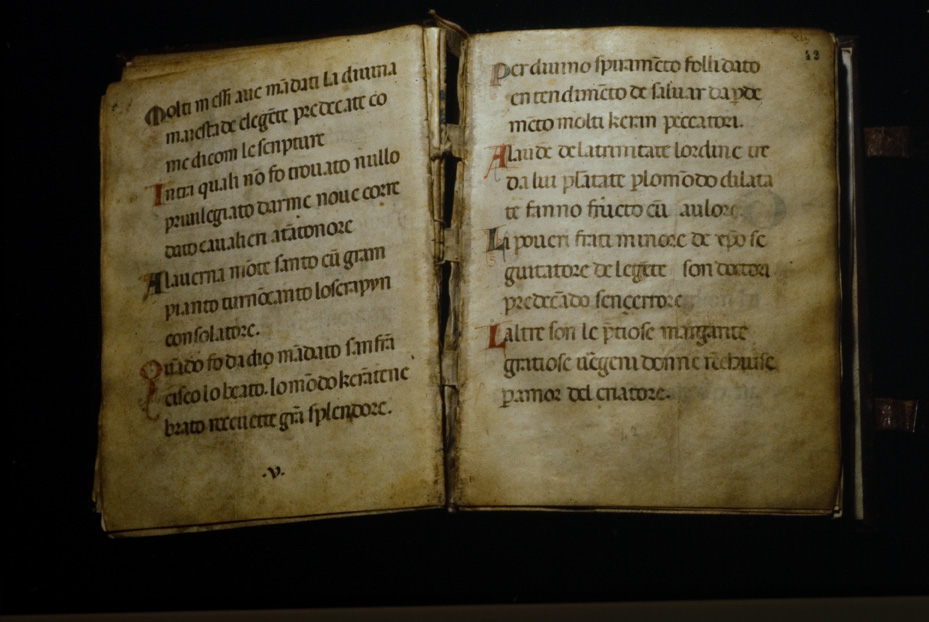 Molti messi auc mādati la diuina
maiestade elegēte predecate co
me dicom le scripture
Intra quali nō fo trouato nullo
priuilegiato darme noue corre
dato caualieri atātonore
Alauerna mōte santo cū gram
pianto
consolatore.
Quādo fo da dio mādato san frā
cisco lo beato. lo mōdo kerātene
brato receuette grā splendore.
.v.
42
Per diuino spiramēto folli dato
entendimēto de saluar
mēto molti keran peccatori.
Alaude de la trinitate lordine tre
da lui plātate p lo mōdo dilata
te fanno fructo cū aulore.
Li poueri frati minore de xp̄o se
guitatore de le gēte son doctori
predecādo sença errore
Laltre son le p̄tiose margarite
gratiose uēgeni donne rēchiuse
p amor del criatore.